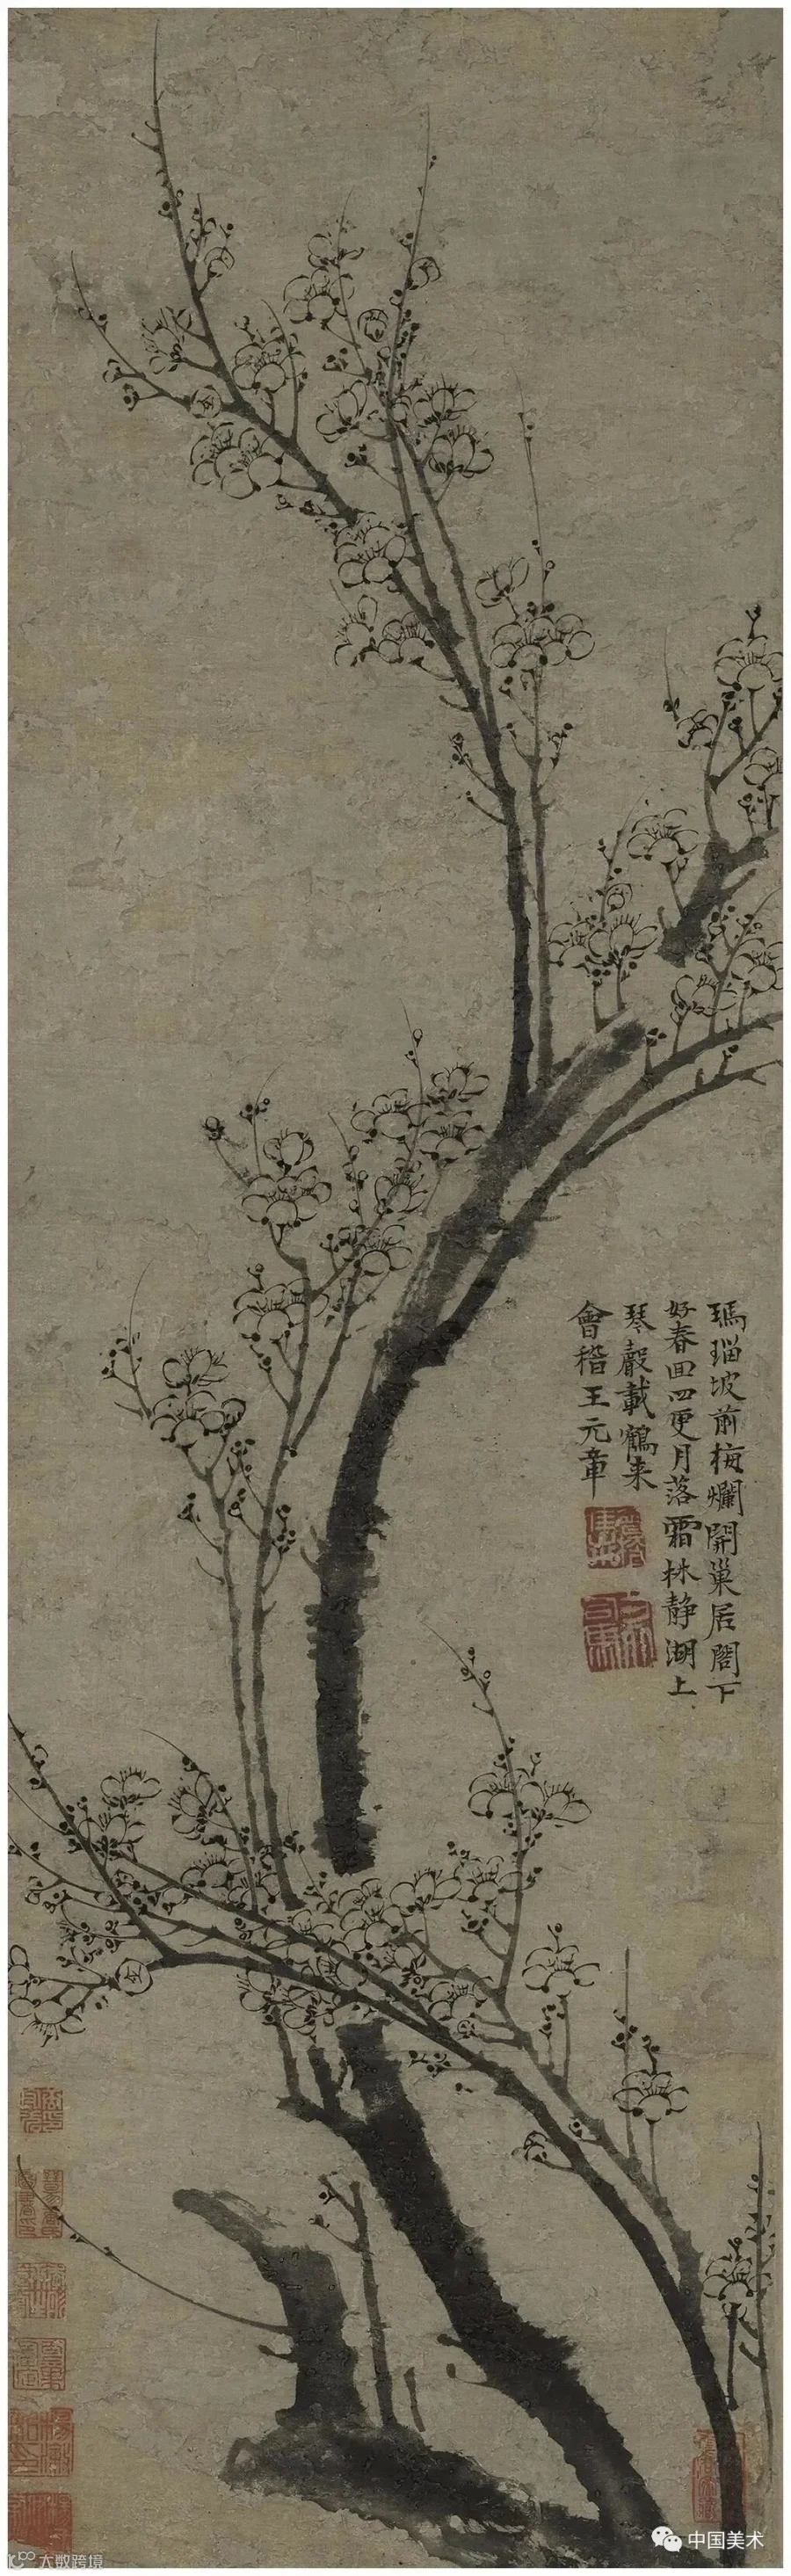 瑪瑙坡前梅爛開巢居閣下
好春回四更月落霜林静湖上
琴聲載鶴来
會稽王元章
中国美术
大数跨境